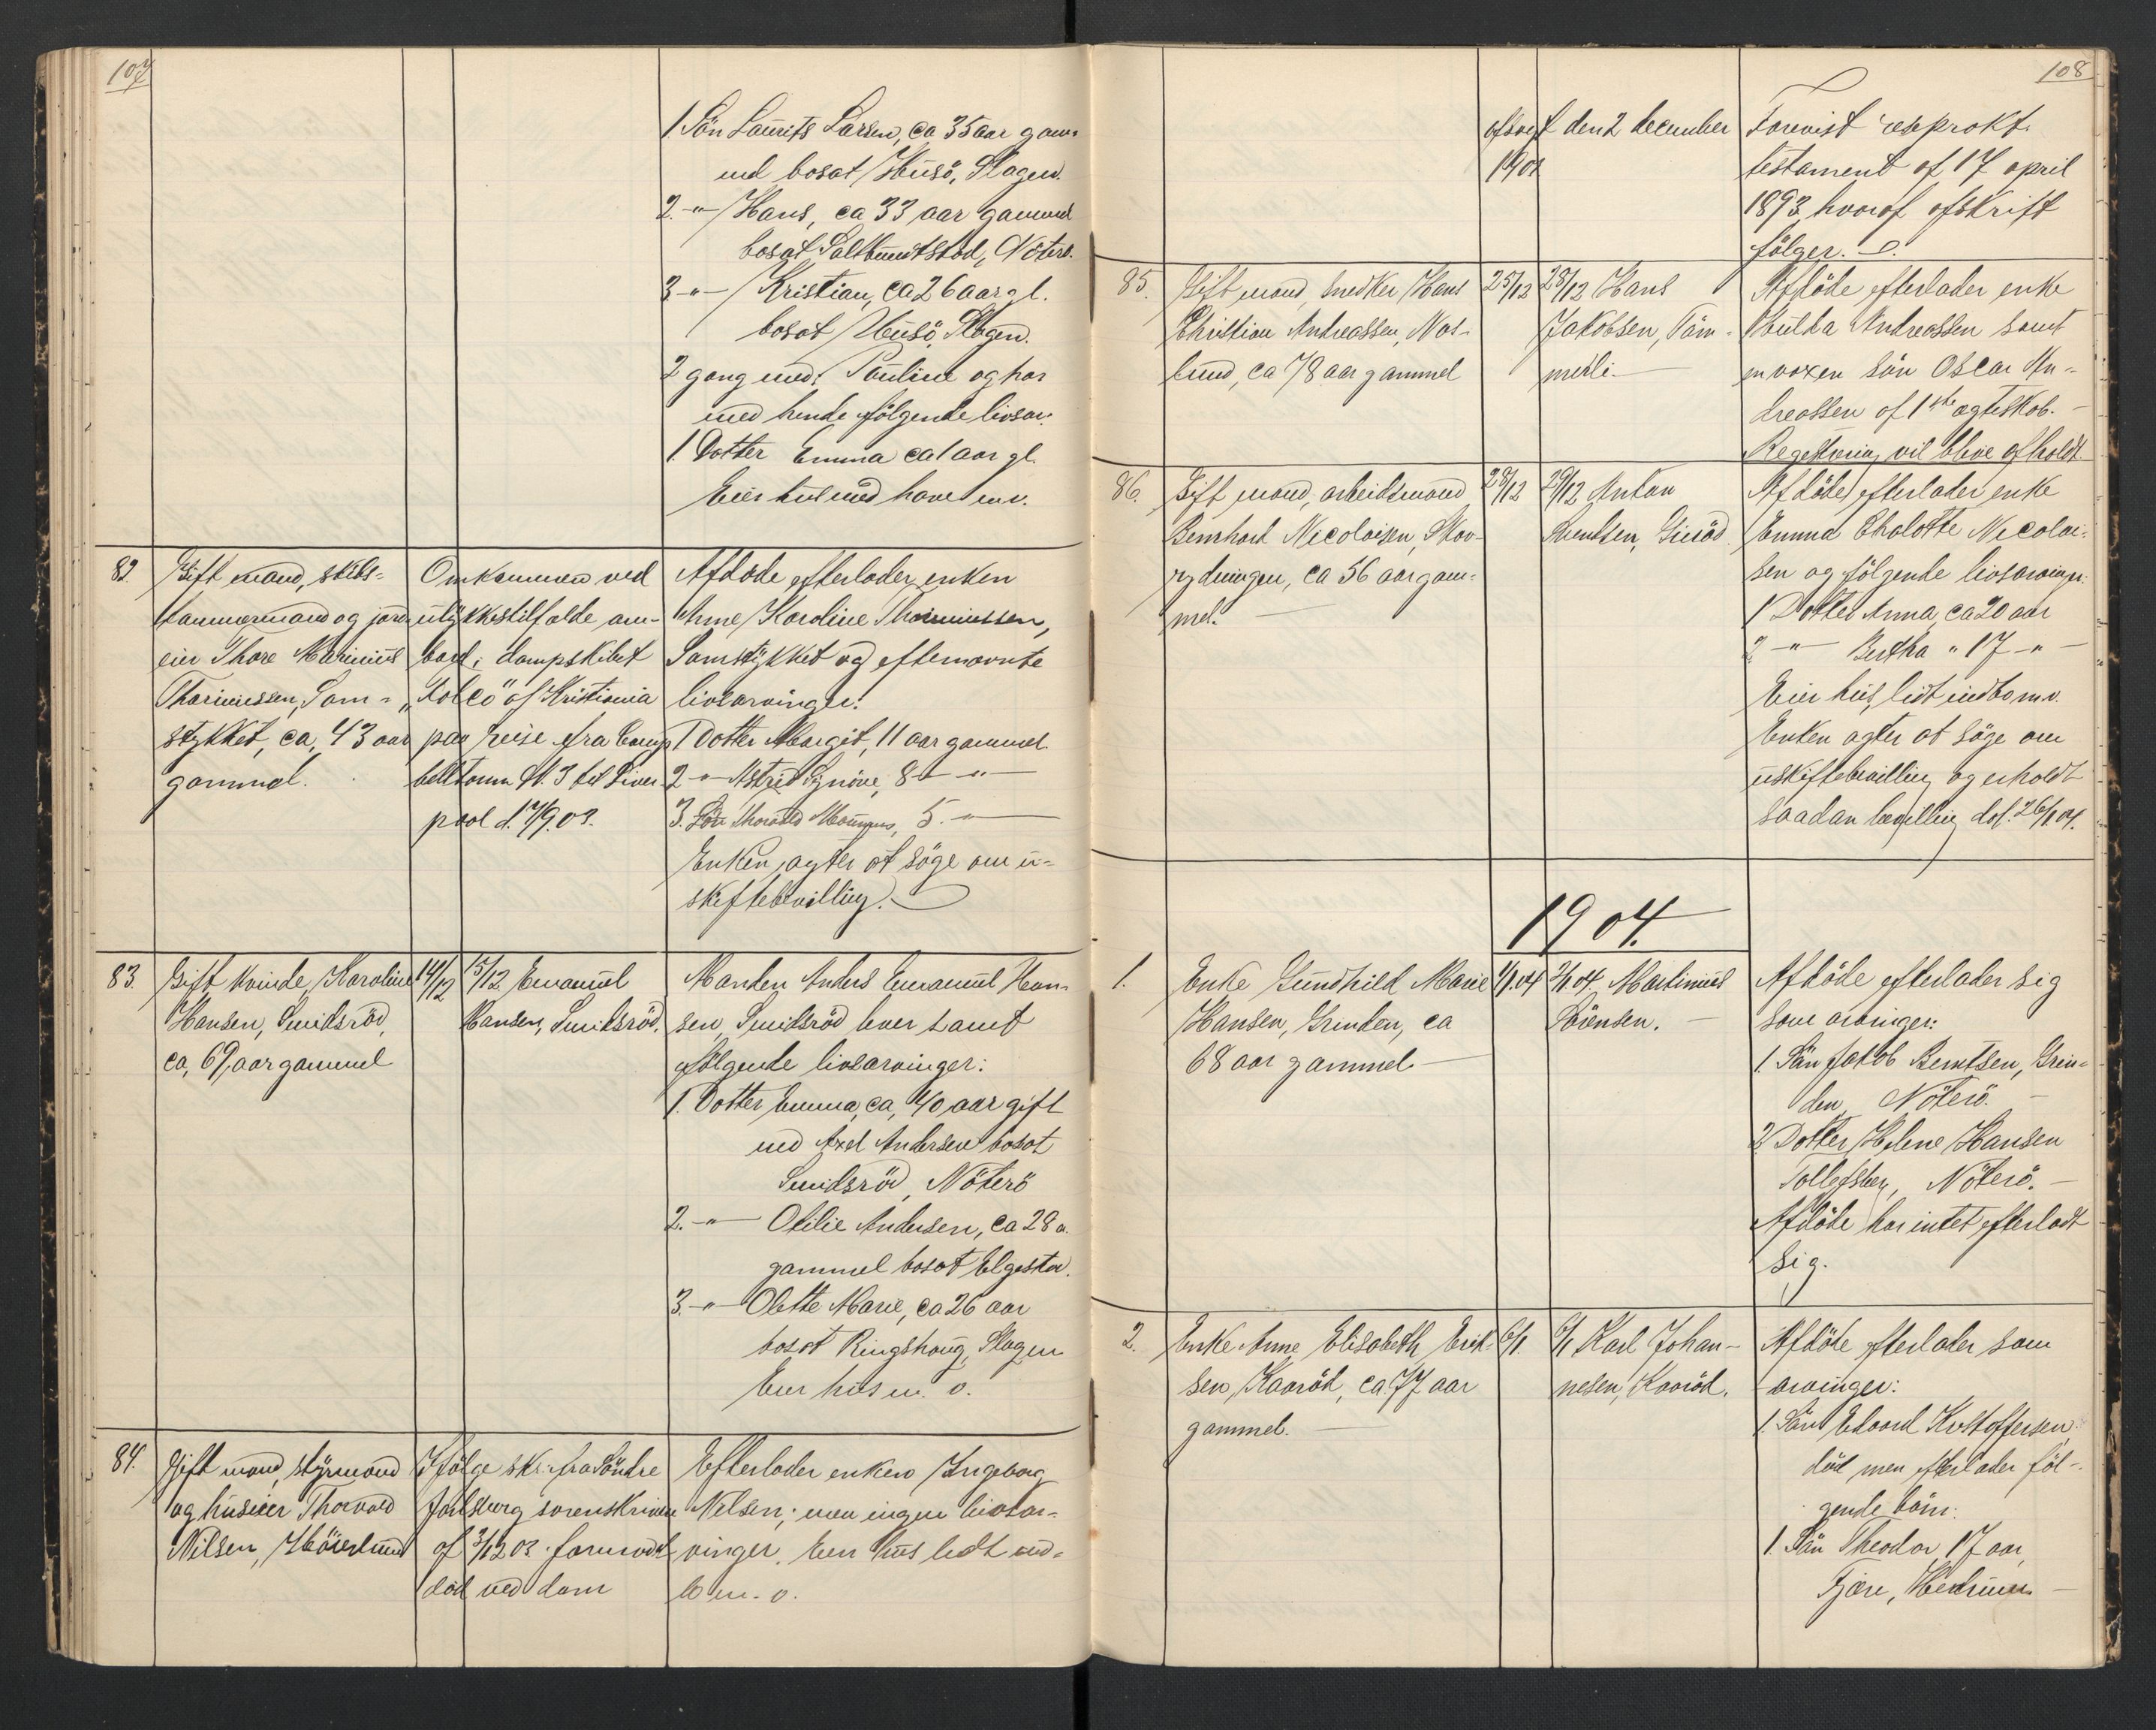 107
1 Sön Laurits Larsen, ca 35 aar gam-
mel bosat Husö, Slagen.
2. -"- Hans, ca 33 aar gammel
bosat Saltbuudtstod, Nöterö.
3 -"- Kristian, ca 26 aar gl.
bosat Husö, Slagen.
2 gang med: Pauline og har
med hende fölgende livsarv.
1. Dotter Emma ca 1 aar gl.
Eier hus med have m.v.
82. Gift mand, skibs-
tömmermand og jord-
eier Thore Marinius
Thorinussen, Sam-
stykket, ca, 43 aar
gammel.
Omkommen ved
ulykkestilfælde om-
bord i dampskibet
af Kristiania
paa reise fra Camp-
belltown N.B. til Liver-
pool d. 17/9.03.
Afdøde efterlader enken
Anne Karoline Thorinussen,
Samstykket og efternævnte
livsarvinger:
1 Dotter Margit, 11 aar gammel
2 -"- Astrid Signöve, 8 -"-
3. Sön Thorvald Magnus, 5. -"-
Enken agter at söge om u-
skiftebevilling.
83. Gift kvinde, Karoline
Hansen, Smidsröd,
ca, 69 aar gammel
14/12
15/12. Emanuel
Hansen, Smidsröd.
Manden Anders Emanuel Han-
sen, Smidsröd lever samt
fölgende livsarvinger:
1. Dotter Emma, ca, 40 aar gift
med Axel Andersen bosat
Smidsröd, Nöterö
2. -"- Otilie Andersen, ca 28 a.
gammel bosat Elgesta.
3. -"- Olette Marie, ca 26 aar
bosat Ringshoug, Slagen
Eier hus m. v.
84. Gift mand, styrmand
og huseier Thorvald
Nilsen, Höilund
Ifölge skr. fra Söndre
Jarlsberg sorenskriveri
af 3/12 03. formodet
död ved dom
Efterlader enken Ingeborg
Nilsen; men ingen livsar-
vinger. Eier hus lidt ind-
bo m. v.
108
afsagt den 2 december
1901
Forevist resprokt.
testament af 17 april
1893, hvoraf afskrift
fölger.
85. Gift mand, snedker Hans
Christian Andreassen, Nes-
lund, ca 78 aar gammel
25/12
28/12 Hans
Jakobsen, Töm-
merli.
Afdöde efterlader enke
Hulda Andreassen samt
en voxen sön Oscar An-
dreassen af 1ste ægteskab.
Registrering vil blive afholdt
86. Gift mand, arbeidsmand
Bernhard Nicolaisen, Skov-
rydningen, ca 56 aar gam-
mel.
28/12
29/12 Anton
Svendsen,
Afdöde efterlader enke
Emma Chalotte Nicolai-
sen og fölgende livsarving.
1 Dotter Anna, ca 20 aar
2 -"- Bertha " 17 -"-
Eier hus, lidt indbo m.v.
Enken agter at söge om
uskiftebevilling og erholdt
saadan bevilling d. 26/1 04.
1904.
1. Enke Gundhild Marie
Hansen, Grinden, ca
68 aar gammel
1/1.04
2/1 04, Martinius
Sörensen.
Afdöde efterlader sig
som arvinger:
1. Sön Jakob Berntsen, Grin-
den, Nöterö.
2 Dotter Helene Hansen
Tollefsberg, Nöterö.
Afdöde har intet efterladt
sig.
2. Enke Anne Elisabeth Erik-
sen, Kaaröd, ca 77 aar
gammel.
6/1
6/1 Karl Johan-
nesen, Kaaröd.
Afdöde efterlader som
arvinger:
1. Sön Edvard Kristoffersen,
död men efterlader föl-
gende börn:
1. Sön Theodor 17 aar,
Tjære, Hedrum